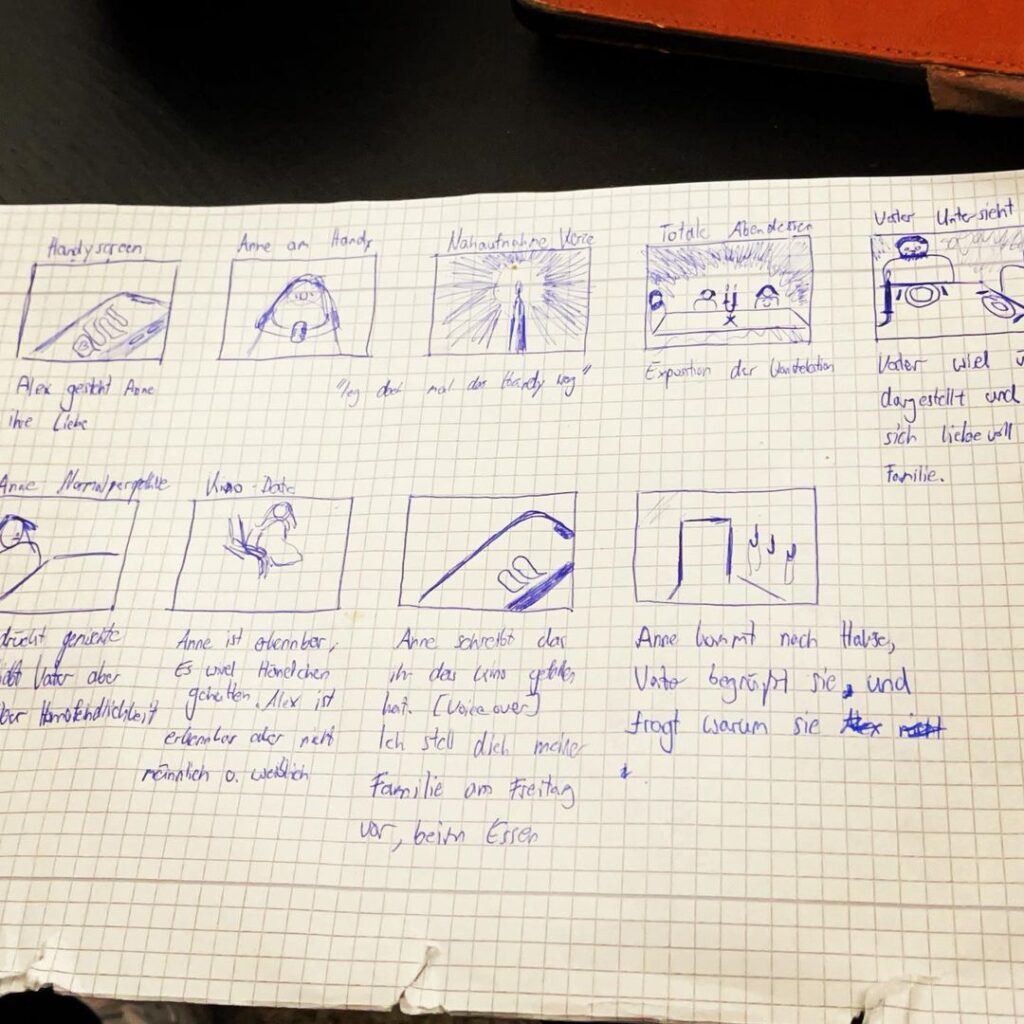 Handyscreen
Alex gesteht Anne
ihre Liebe
Anne am Handy
Nahaufnahme Kerze
"leg doch mal das Handy weg"
Totale Abendessen
Exposition der Konstelation
Vater Untersicht
Vater wiel
dargestellt und
sich liebevoll
Familie.
Anne Normalperspektive
drückt gemischte
Vater aber
Homofeindlichkeit
Kino-Date
Anne ist erkennbar,
Es wird Händchen
gehalten. Alex ist
erkennbar aber nicht
männlich o. weiblich
Anne schreibt das
ihr das Kino gefallen
hat. [Voiceover]
Ich stell dich meiner
Familie am Freitag
vor, beim Essen
Anne kommt nach Hause,
Vater begrüßt sie, und
fragt warum sie